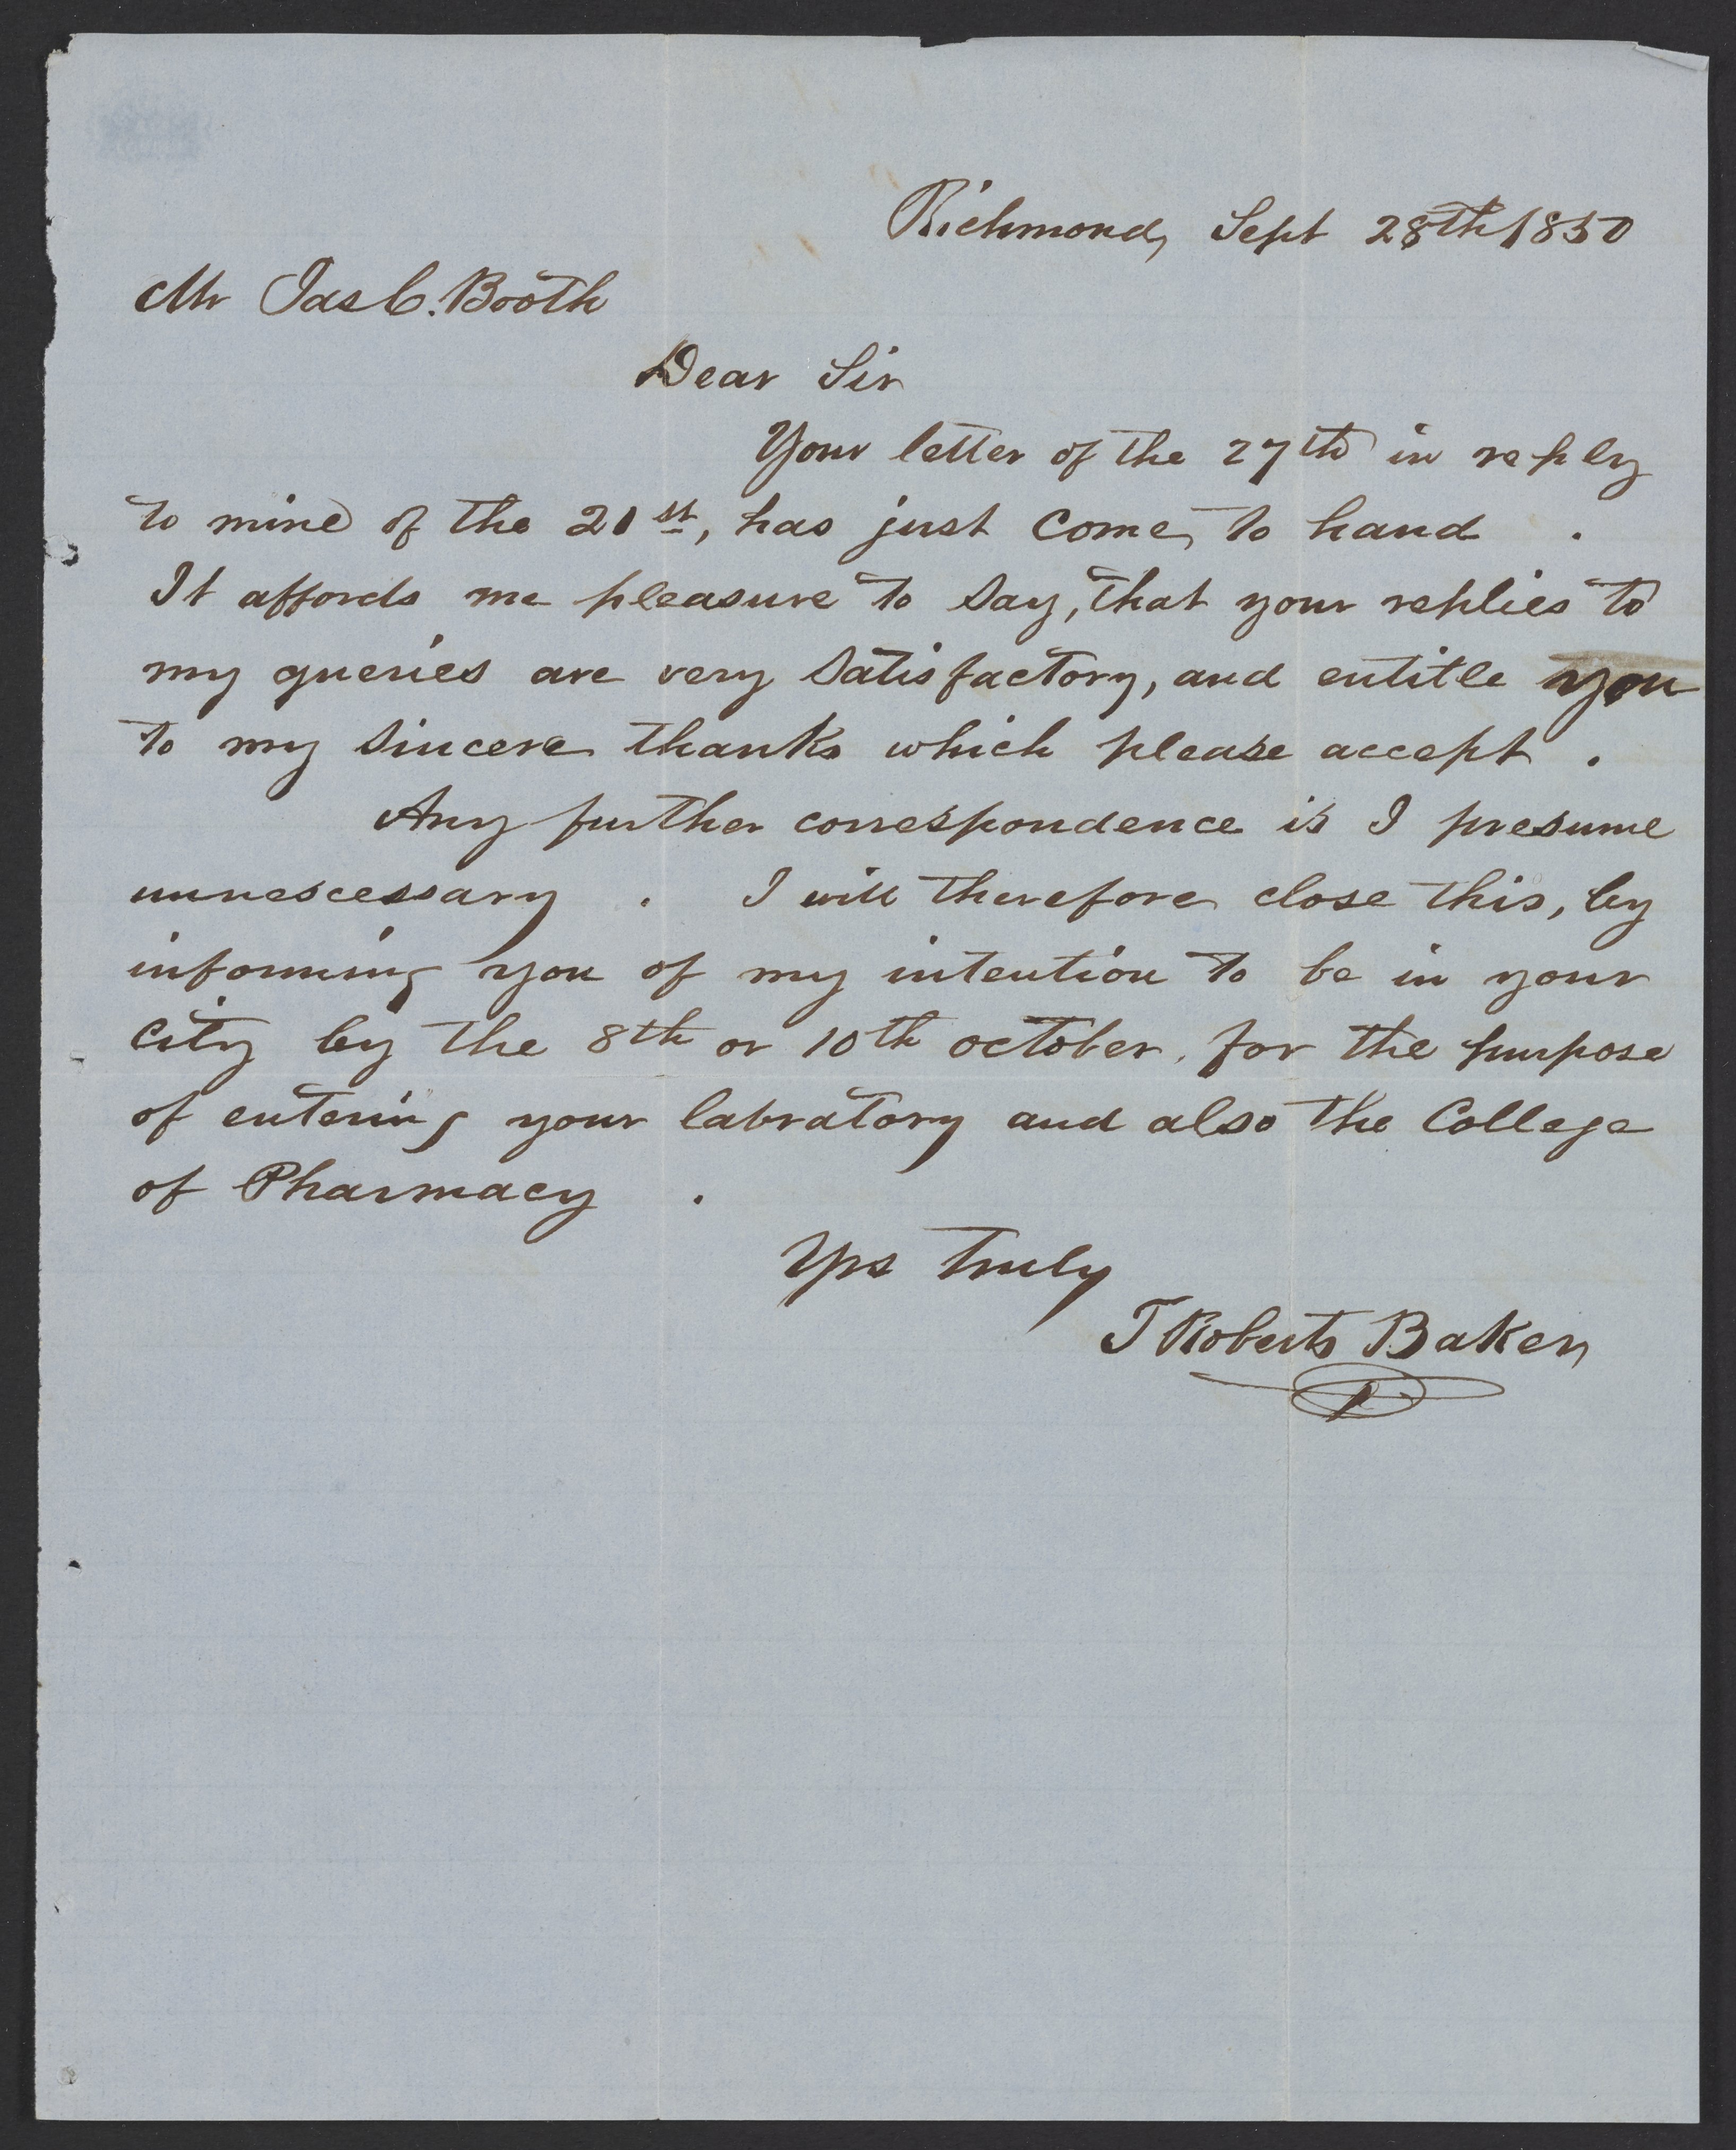 Richmond, Sept 28th 1850
Mr Jas C. Booth
Dear Sir
Your letter of the 27th in reply
to mine of the 21st, has just come to hand .
It affords me pleasure to say, that your replies to
my queries are very satisfactory, and entitle you
to my sincere thanks which please accept .
Any further correspondence is I presume
unnescessary . I will therefore close this, by
informing you of my intention to be in your
City by the 8th or 10th october, for the purpose
of entering your labratory and also the College
of Pharmacy .
Yrs truly
T Roberts Baker